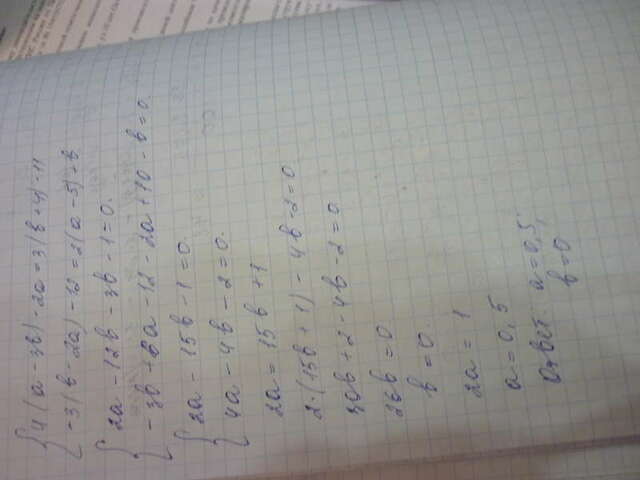 4(a-3b)-2a=3(b+4)-11
-3(b-2a)-12=2(a-5)+b
2a-12b-3b-1=0.
-3b+6a-12-2a+10-b=0.
2a-15b-1=0.
4a-4b-2=0.
2a=15b+1
2·(15b+1)-4b-2=0
30b+2-4b-2=0
26b=0
b=0.
2a=1
a=0,5
Ответ: a=0,5,
b=0